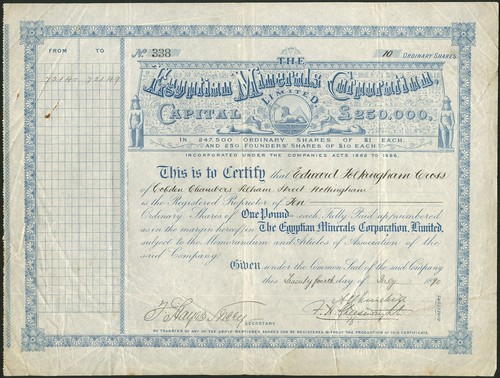 FROM TO
No 338
10 ORDINARY SHARES
THE
Egyptian Minerals Corporation,
LIMITED
CAPITAL £250,000.
IN 247,500 ORDINARY SHARES OF £1 EACH,
AND 250 FOUNDERS' SHARES OF £10 EACH
INCORPORATED UNDER THE COMPANIES ACTS 1862 TO 1886.
This is to Certify that Edward Folkingham Cross
of Cobden Chambers Pelham Street Nottingham
is the Registered Proprietor of Ten
Ordinary Shares of One Pound each, Fully Paid up, numbered
as in the margin hereof in The Egyptian Minerals Corporation, Limited,
subject to the Memorandum and Articles of Association of the
said Company.
Given under the Common Seal of the said Company
this Twenty fourth day of 1890
SECRETARY
NO TRANSFER OF ANY OF THE ABOVE MENTIONED SHARES CAN BE REGISTERED WITHOUT THE PRODUCTION OF THIS CERTIFICATE.